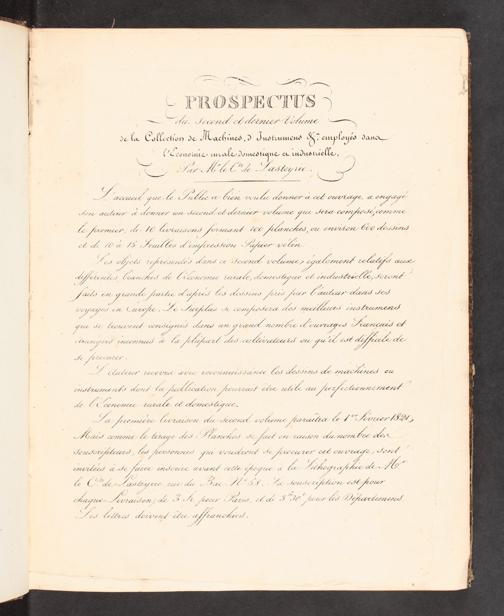 PROSPECTUS
du second et dernier Volume
de la Collection de Machines, d'Instrumens &c. employés dans
l'Economie rurale domestique et industrielle,
Par Mr. le Cte. de Lasteyrie.
L'accueil que le Public a bien voulu donner à cet ouvrage a engagé
son auteur à donner un second et dernier volume qui sera composé, comme
le premier, de 10 livraisons formant 100 planches, ou environ 600 dessins
et de 10 à 15 Feuilles d'impression Papier velin.
Les objets représentés dans ce second volume, également relatifs aux
différentes branches de l'économie rurale, domestique et industrielle, seront
faits en grande partie d'après les dessins pris par l'auteur dans ses
voyages en Europe. Le Surplus se composera des meilleurs instrumens
qui se trouvent consignés dans un grand nombre d'ouvrages Francais et
étrangers inconnus à la plupart des cultivateurs ou qu'il est difficile de
se procurer.
L'éditeur recevra avec reconnaissance les dessins de machines ou
instruments dont la publication pourrait être utile au perfectionnement
de l'Economie rurale et domestique.
La première livraison du second volume paraîtra le 1er. Février 1821,
Mais comme le tirage des Planches se fait en raison du nombre des
souscripteurs, les personnes qui voudront se procurer cet ouvrage, sont
invitées à se faire inscrire avant cette époque à la Lithographie de Mr.
le Cte. de Lasteyrie, rue du Bac No. 58. La souscription est pour
chaque Livraison, de 3 fr pour Paris, et de 3f 30c pour les Départemens
Les lettres doivent être affranchies.